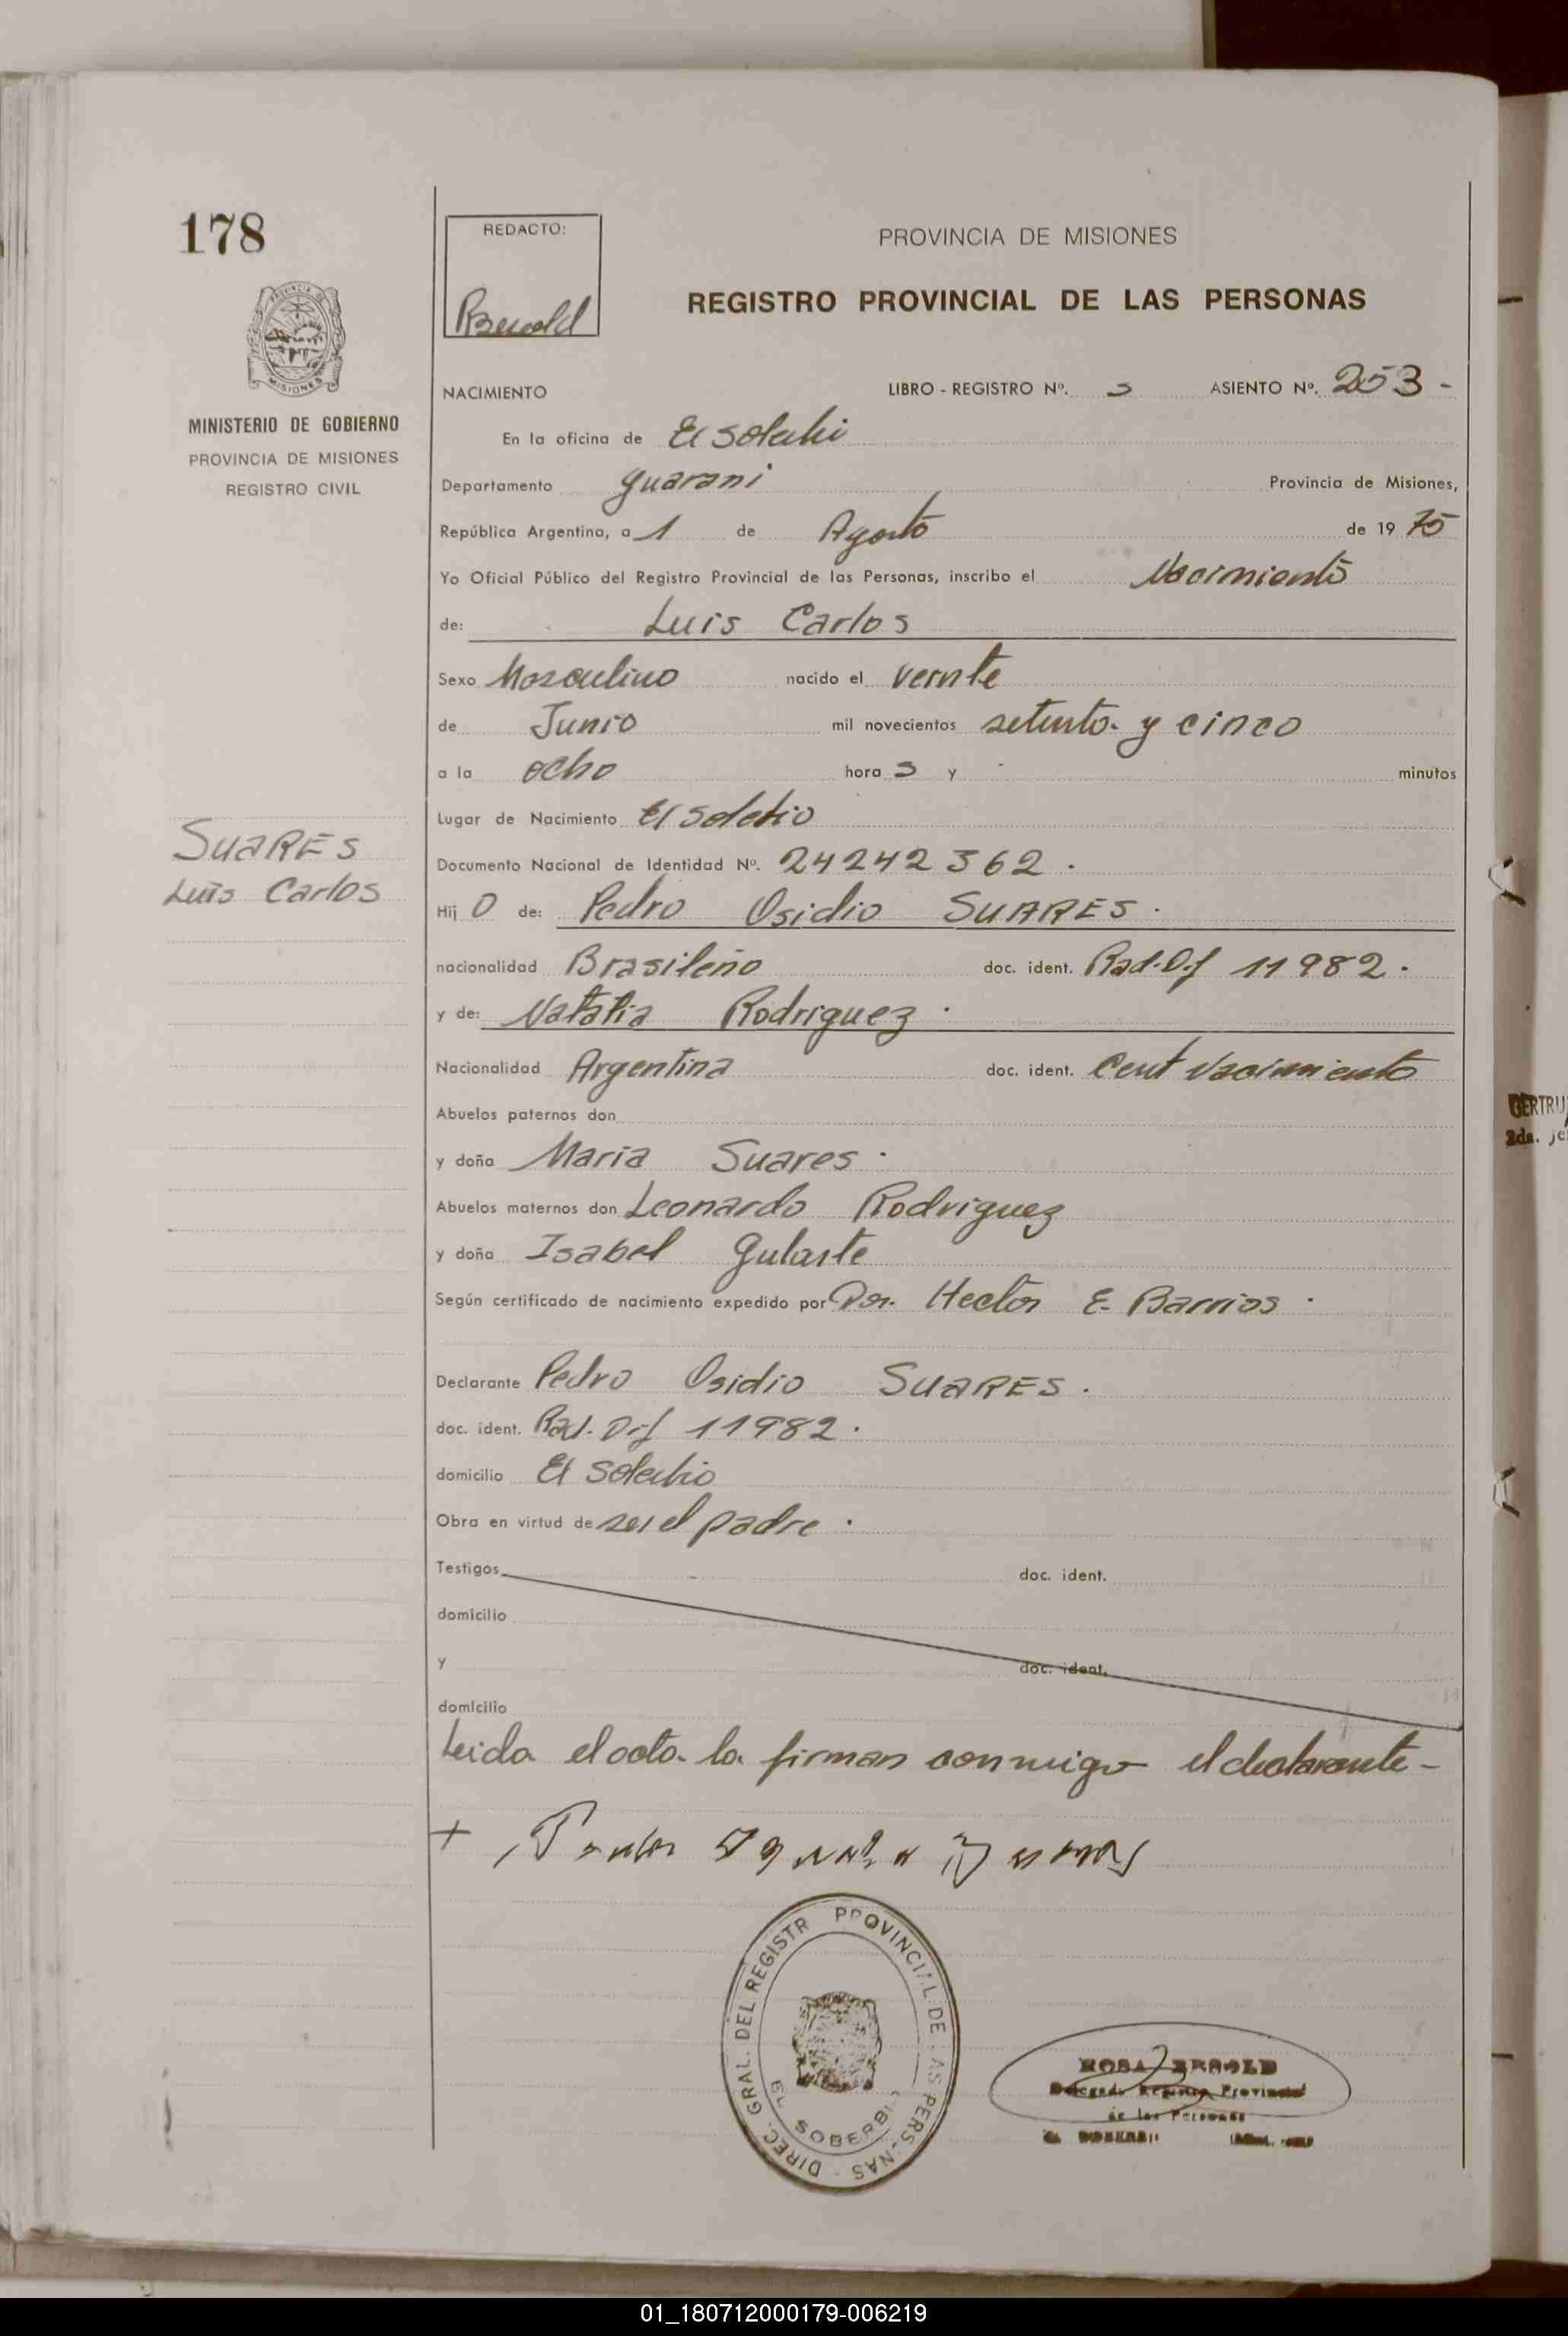 178
REDACTO:
PROVINCIA DE MISIONES
REGISTRO PROVINCIAL DE LAS PERSONAS
MISIONES
MINISTERIO DE GOBIERNO
PROVINCIA DE MISIONES
REGISTRO CIVIL
NACIMIENTO LIBRO - REGISTRO Nº. 3 ASIENTO Nº. 253 -
En la oficina de El Soberbio
Departamento guarani Provincia de Misiones,
República Argentina, a 1 de Agosto de 19 75
Yo Oficial Público del Registro Provincial de las Personas, inscribo el Nacimiento
de: Luis Carlos
Sexo Masculino nacido el veinte
de Junio mil novecientos setenta y cinco
a la ocho hora s y - minutos
Lugar de Nacimiento El Soberbio
SUARES
Luis Carlos
Documento Nacional de Identidad Nº. 24242362.
Hij o de: Pedro Osidio SUARES.
nacionalidad Brasileño doc. ident. Rad. Def 11982.
y de: Natalia Rodriguez.
Nacionalidad Argentina doc. ident. Cert Nacimiento
Abuelos paternos don
y doña Maria Suares.
Abuelos maternos don Leonardo Rodriguez
y doña Isabel Gularte
Según certificado de nacimiento expedido por Dor. Hector E. Barrios.
Declarante Pedro Osidio SUARES.
doc. ident. Rad. Def 11982.
domicilio El Soberbio
Obra en virtud de ser el padre.
Testigos doc. ident.
domicilio
y doc. ident.
domicilio
Leida el acta la firman conmigo el declarante -
+
DIREC. GRAL. DEL REGISTR PROVINCIAL DE LAS PERSONAS -
EL SOBERBIO
ROSA
Registro Provincial
de las Personas
01_180712000179-006219